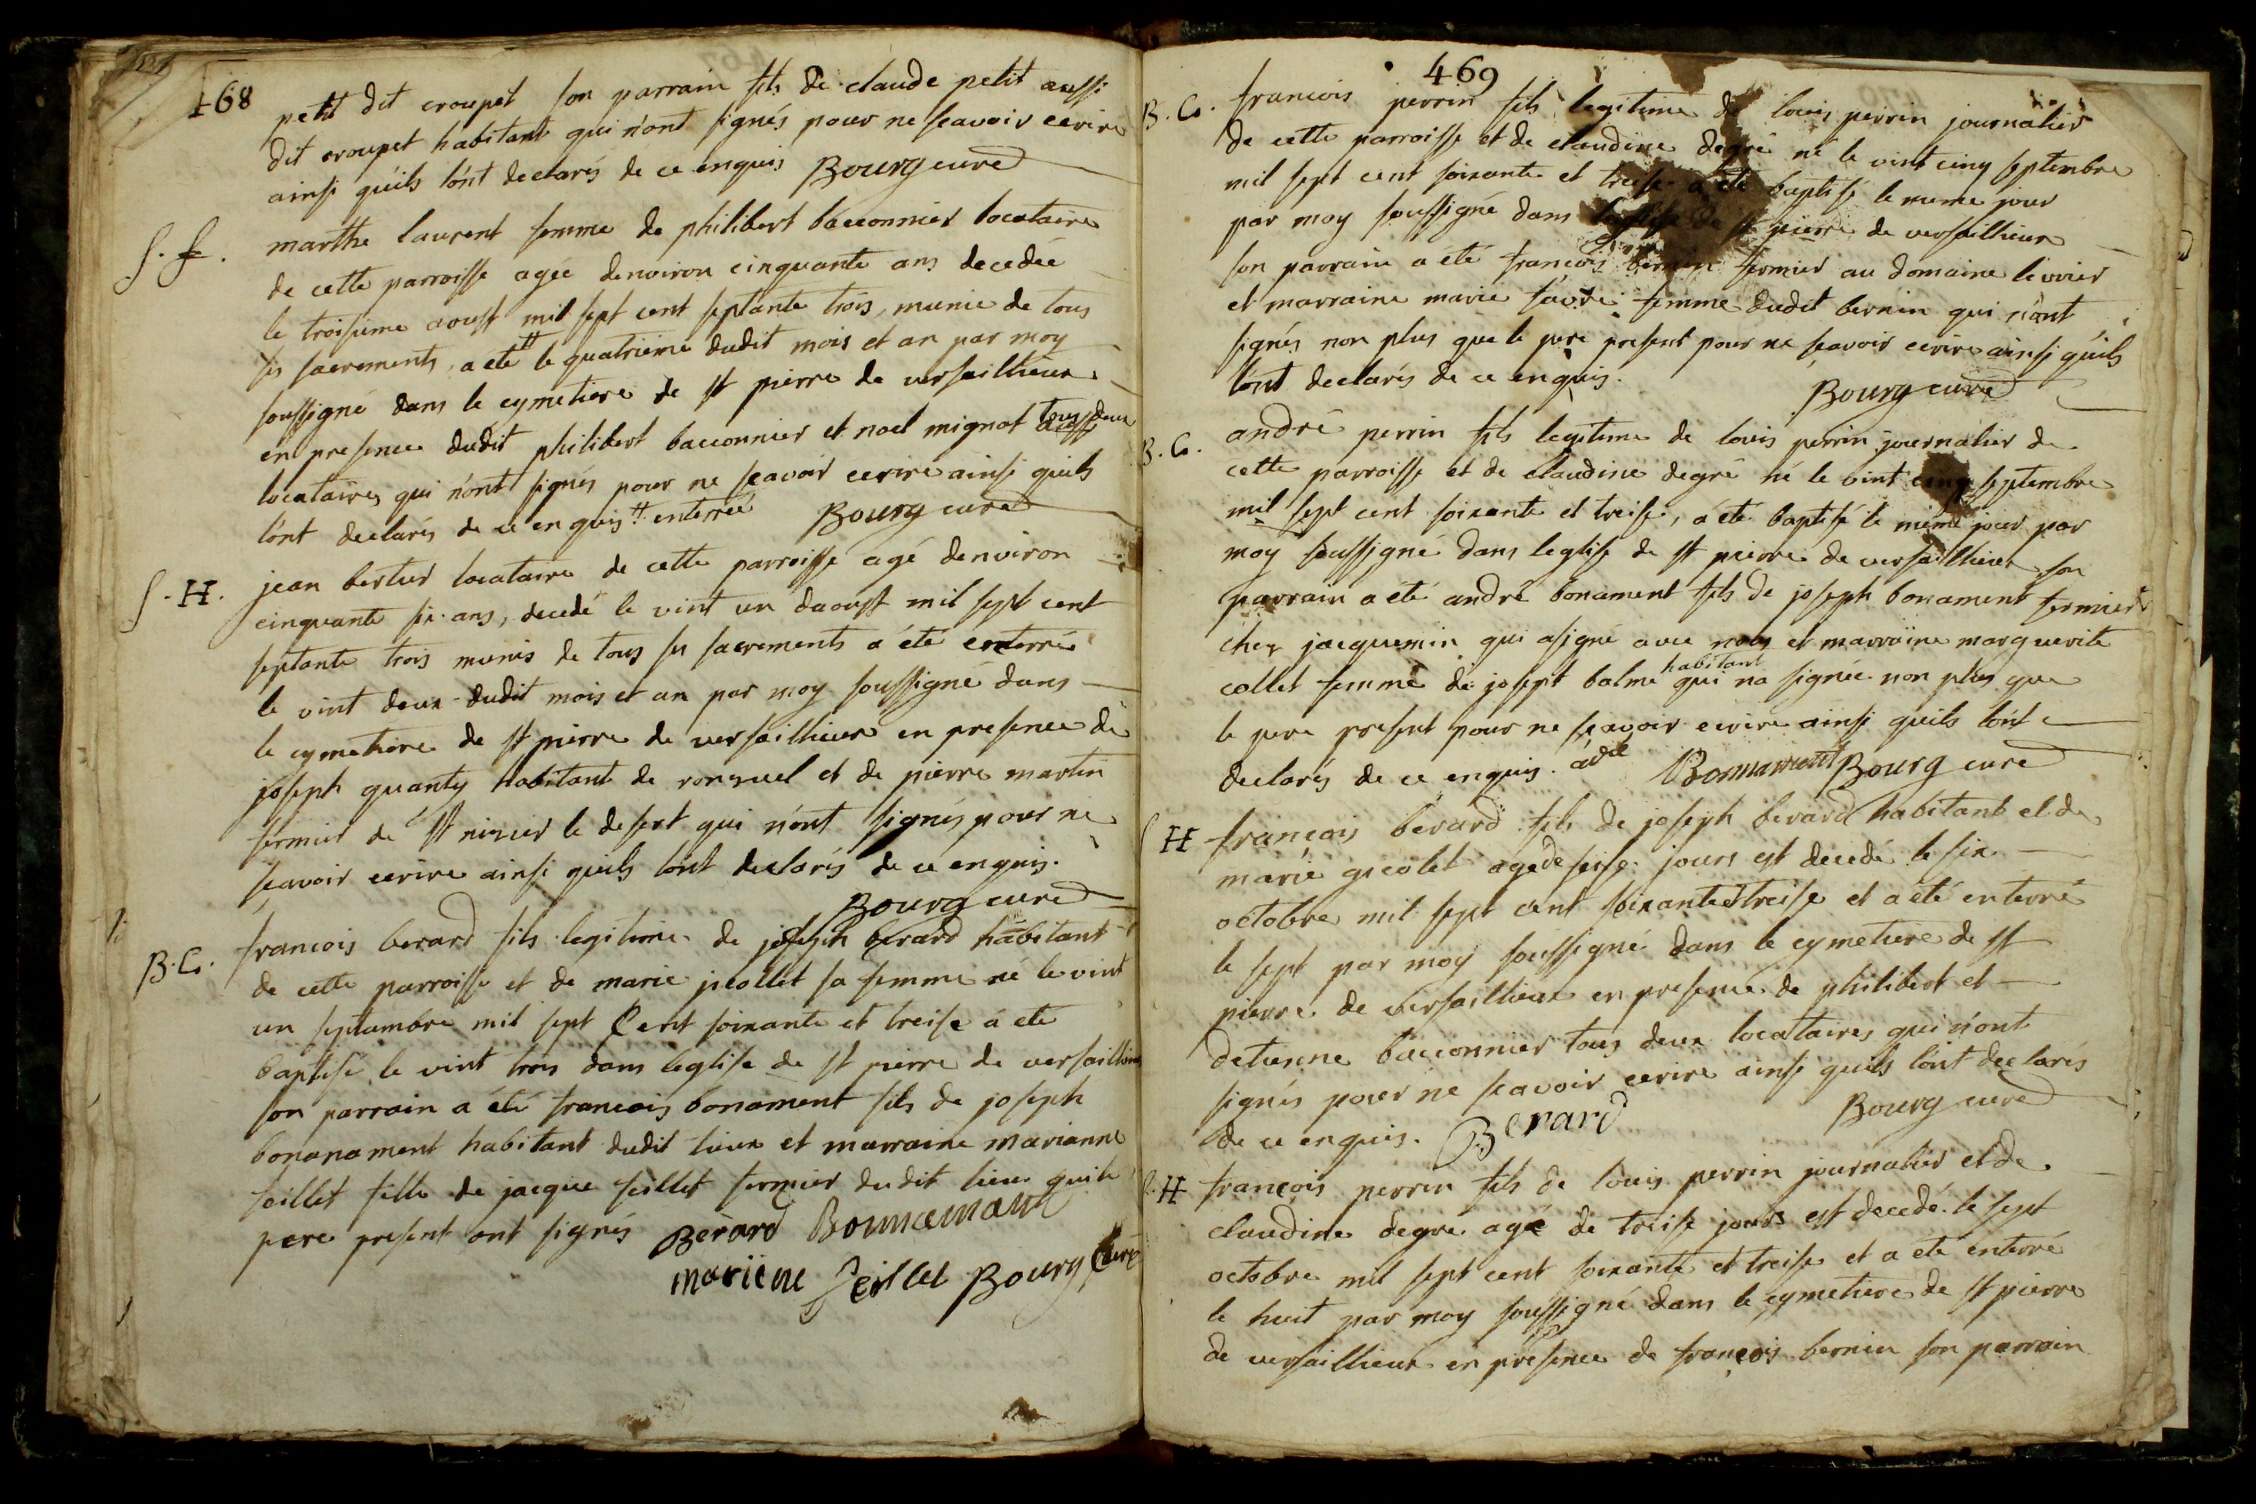 468
petit dit croupet son parrain fils de claude petit aussi
dit croupet habitant qui n'ont signés pour ne scavoir ecrire
ainsi qu'ils l'ont declarés de ce enquis Bourg curé
S. f. marthe laurent femme de philibert bacconnier locataire
de cette parroisse agée denviron cinquante ans decedée
le troisieme aoust mil sept cent septante trois, munie de tous
ses sacrements, a eté # le quatrieme dudit mois et an par moy
soussigné dans le cymetiere de st pierre de versaillieux
en presence dudit philibert bacconnier et noel mignot tous deux
locataires qui n'ont signés pour ne scavoir ecrire ainsi quils
l'ont declarés de ce enquis # enterrée Bourg curé
S. H. jean bertier locataire de cette parroisse agé denviron
cinquante six ans, decedé le vint un daoust mil sept cent
septante trois munis de tous ses sacrements a été enterré
le vint deux dudit mois et an par moy soussigné dans
le cymetiere de st pierre de versaillieux en presence de
joseph quanty habitant de ronzuel et de pierre martin
fermier de st nizier le desert qui n'ont signés pour ne
scavoir ecrire ainsi quils l'ont declarés de ce enquis.
Bourg curé
B. G. francois berard fils legitime de joseph berard habitant
de cette parroisse et de marie picollet sa femme né le vint
un septembre mil sept Cent soixante et treise a eté
baptisé le vint trois dans leglise de st pierre de versaillieux
son parrain a été francois bonament fils de joseph
bonanament habitant dudit lieux et marraine marianne
seillet fille de jacque seillet fermier dudit lieux qui le
pere present ont signés Bèrard Bonnemant
mariene Seillet Bourg Curé
469
B. G. francois perrin fils legitime de louis perrin journalier
de cette parroisse et de claudine degré né le vint cinq septembre
mil sept cent soixante et treise a été baptisé le meme jour
par moy soussigné dans leglise de st pierre de versaillieux
son parrain a été francois bernin fermier au domaine livrier
et marraine marie favre femme dudit bernin qui n'ont
signés non plus que le pere present pour ne scavoir ecrire ainsi q'uils
l'ont declarés de ce enquis. Bourg curé
B. G. andrè perrin fils legitime de louis perrin journalier de
cette parroisse et de claudine degré né le vint cinq septembre
mil sept cent soixante et treise, a été baptisé le même jour par
moy soussigné dans leglise de st pierre de versaillieux son
parrain a été andrè bonament fils de joseph bonament fermier
chez jacquemin qui a signé avec nous et marraine marguerite
collet femme de josept balme habitant qui na signée non plus que
le pere present pour ne scavoir ecrire ainsi quils l'ont
declarés de ce enquis. Bonnamant Bourg curé
H françois berard fils de joseph berard habitant et de
marie gicolet agé de seise jours est decedé le six
octobre mil sept cent soixante et treise et a été enterré
le sept par moy soussigné dans le cymetiere de st
pierre de versaillieux en presence de philibert et
detienne bacconnier tous deux locataires qui n'ont
signés pour ne scavoir ecrire ainsi quils l'ont declarés
de ce enquis. Berard Bourg curé
H françois perrin fils de louis perrin journalier et de
claudine degre agé de treise jours est decedé le sept
octobre mil sept cent soixante et treise et a eté enterré
le huit par moy soussigné dans le cymetiere de st pierre
de versaillieux en presence de françois bernin son parrain